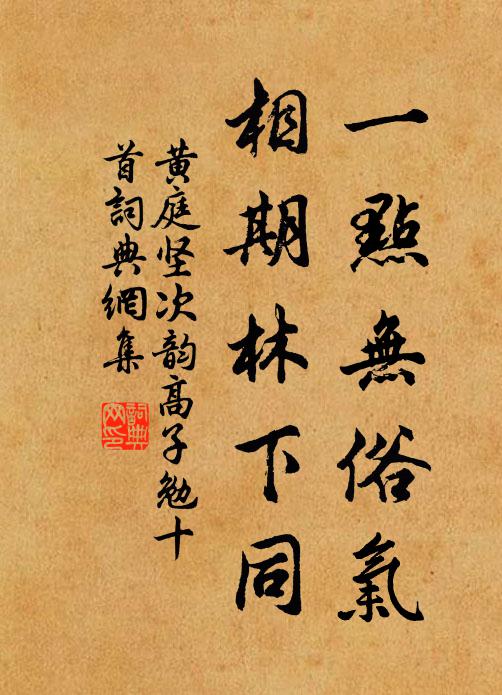 一點無俗氣
相期林下同
黄庭坚次韵高子勉十
首詞典網集
詞典
网印